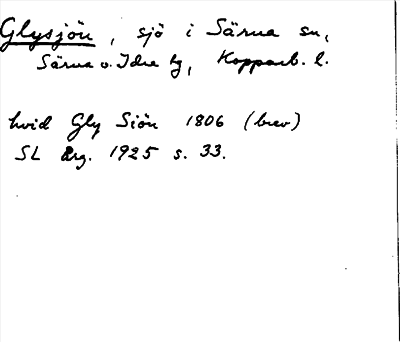 Glysjön, sjö i Särna sn,
Särna o. Idre tg, Kopparb. l.
hvid Gly Siön 1806 (brev)
SL årg. 1925 s. 33.